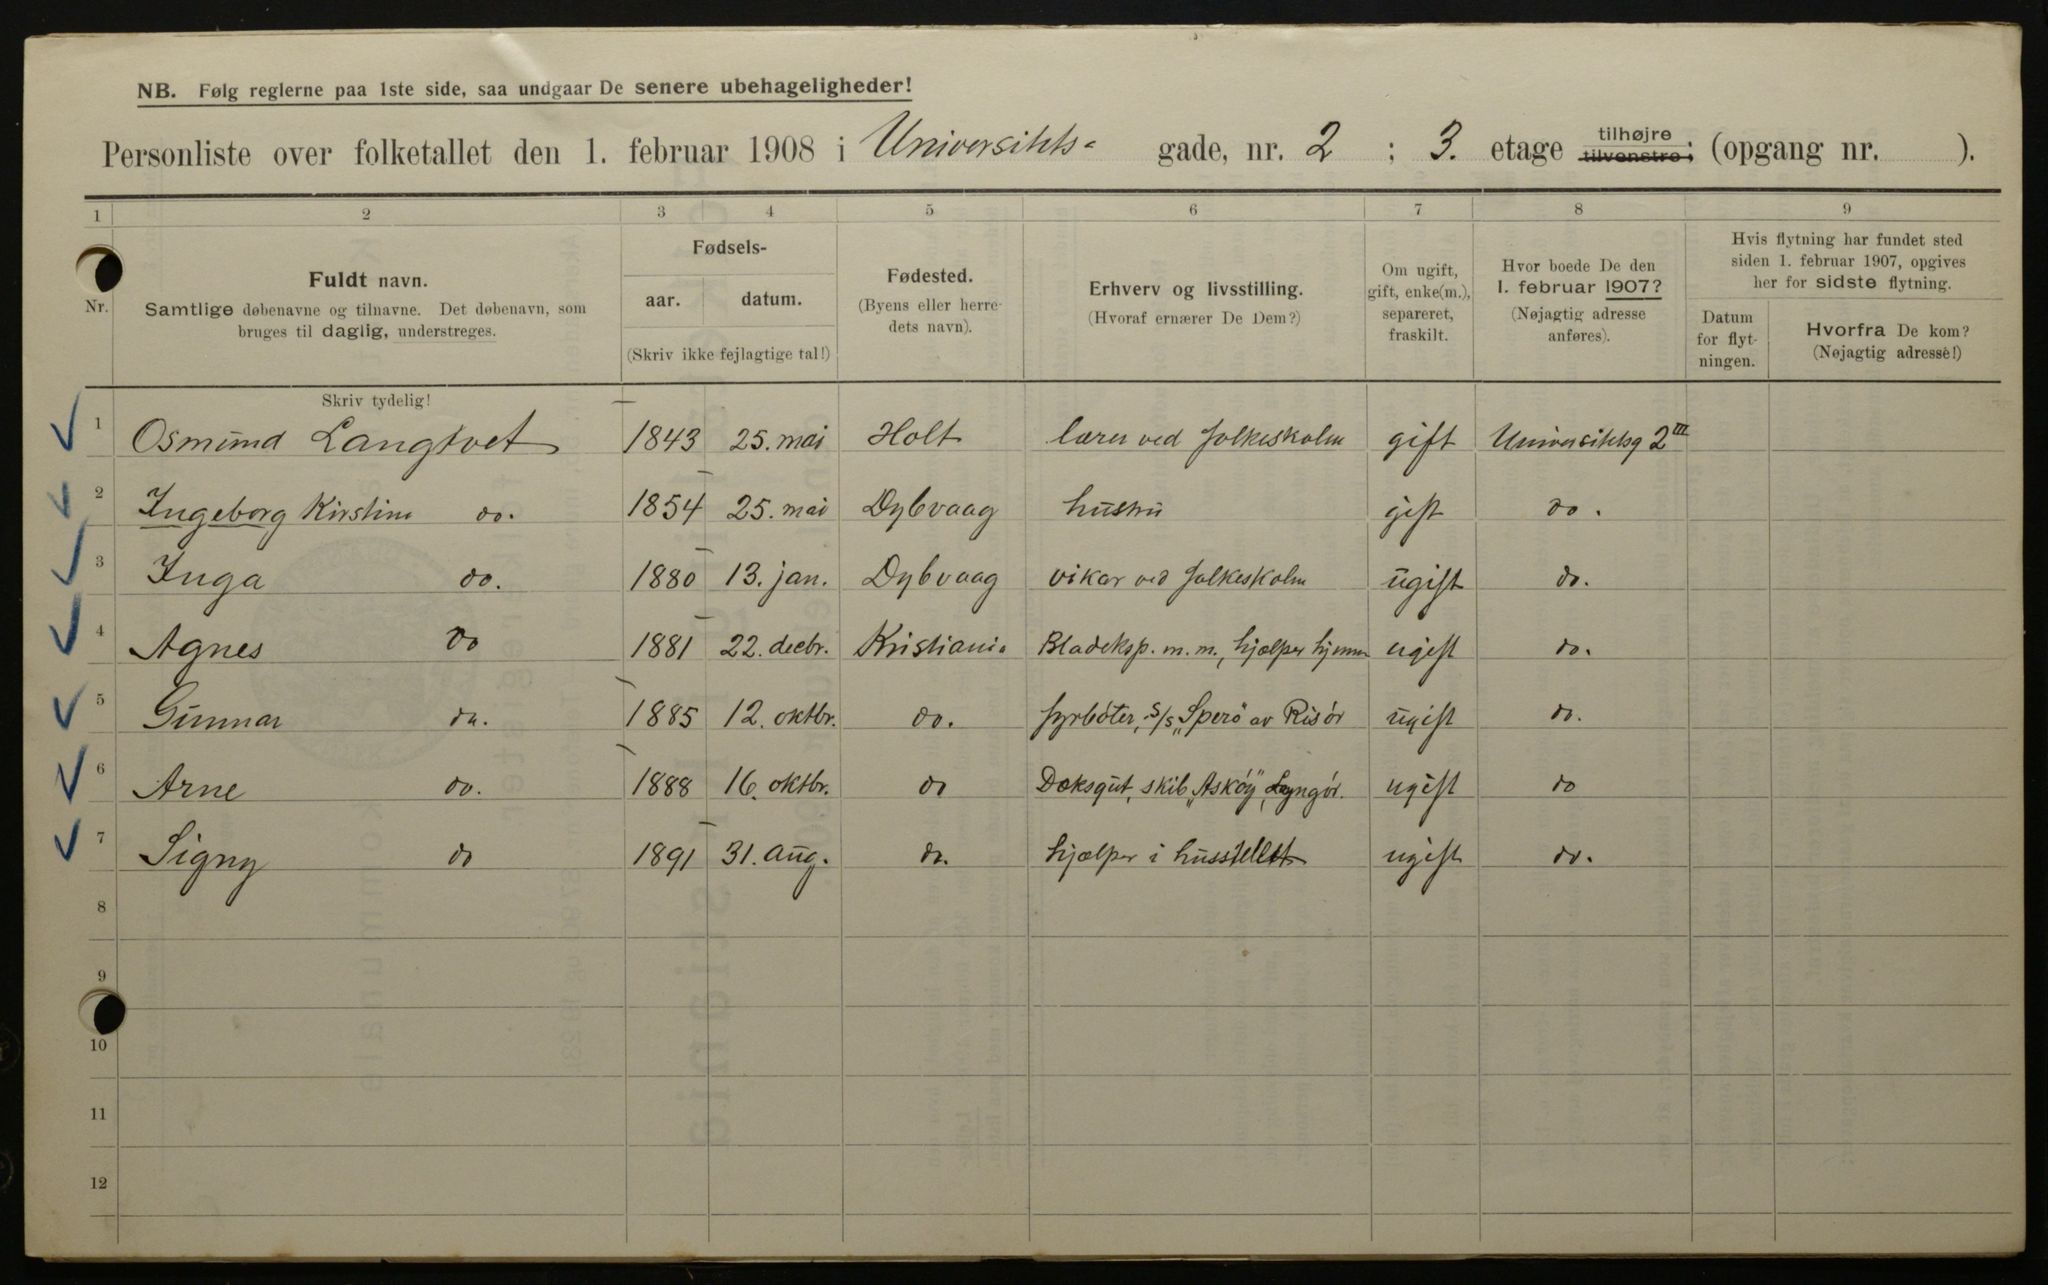 NB. Følg reglerne paa 1ste side, saa undgaar De senere ubehageligheder!
Personliste over folketallet den 1. februar 1908 i Universitets- gade, nr. 2 ; 3. etage tilhøjre tilvenstre; (opgang nr. ).
1 2 3 4 5 6 7 8 9
Nr. Fuldt navn. Samtlige døbenavne og tilnavne. Det døbenavn, som bruges til daglig, understreges.
Fødsels-
aar. datum.
(Skriv ikke fejlagtige tal!)
Fødested.
(Byens eller herre-
dets navn).
Erhverv og livsstilling.
(Hvoraf ernærer De Dem?)
Om ugift,
gift, enke(m.),
separeret,
fraskilt.
Hvor boede De den
1. februar 1907?
(Nøjagtig adresse
anføres).
Hvis flytning har fundet sted
siden 1. februar 1907, opgives
her for sidste flytning.
Datum
for flyt-
ningen.
Hvorfra De kom?
(Nøjagtig adresse!)
Skriv tydelig!
1 Osmund Langtvet 1843 25. mai Holt lærer ved folkeskolen gift Universitetsg 2 III
2 Ingeborg Kirstine do. 1854 25. mai Dybvaag hustru gift do.
3 Inga do. 1880 13. jan. Dybvaag vikar ved folkeskolen ugift do.
4 Agnes do 1881 22. decbr. Kristiania Bladeksp. m. m., hjælper hjemme ugift do.
5 Gunnar do. 1885 12. oktbr. do. fyrbøter, S/S "Sperø" av Risør ugift do.
6 Arne do. 1888 16. oktbr. do Dæksgut, skib "Askøy", Lyngør. ugift do
7 Signy do 1891 31. aug. do. hjælper i husstellet ugift do.
8
9
10
11
12